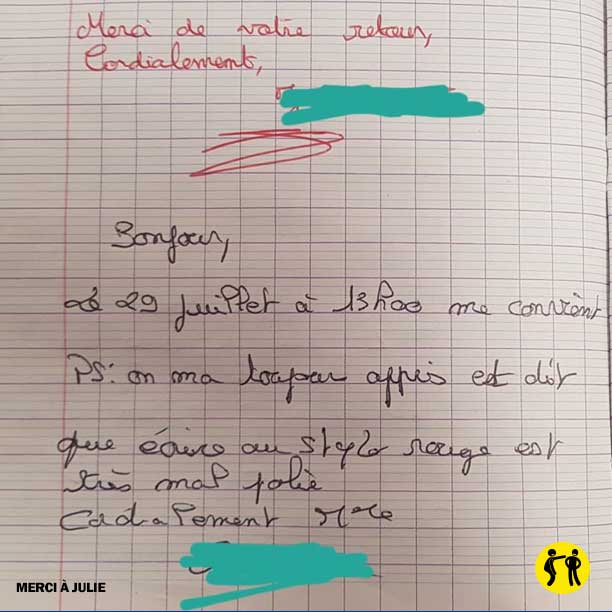 Merci de votre retour,
Cordialement,
Bonjour,
Le 29 juillet à 13h00 me convient
PS: on ma toujour appris est dit
que écrire au stylo rouge est
très mal polie
Cadialement Mme
MERCI À JULIE